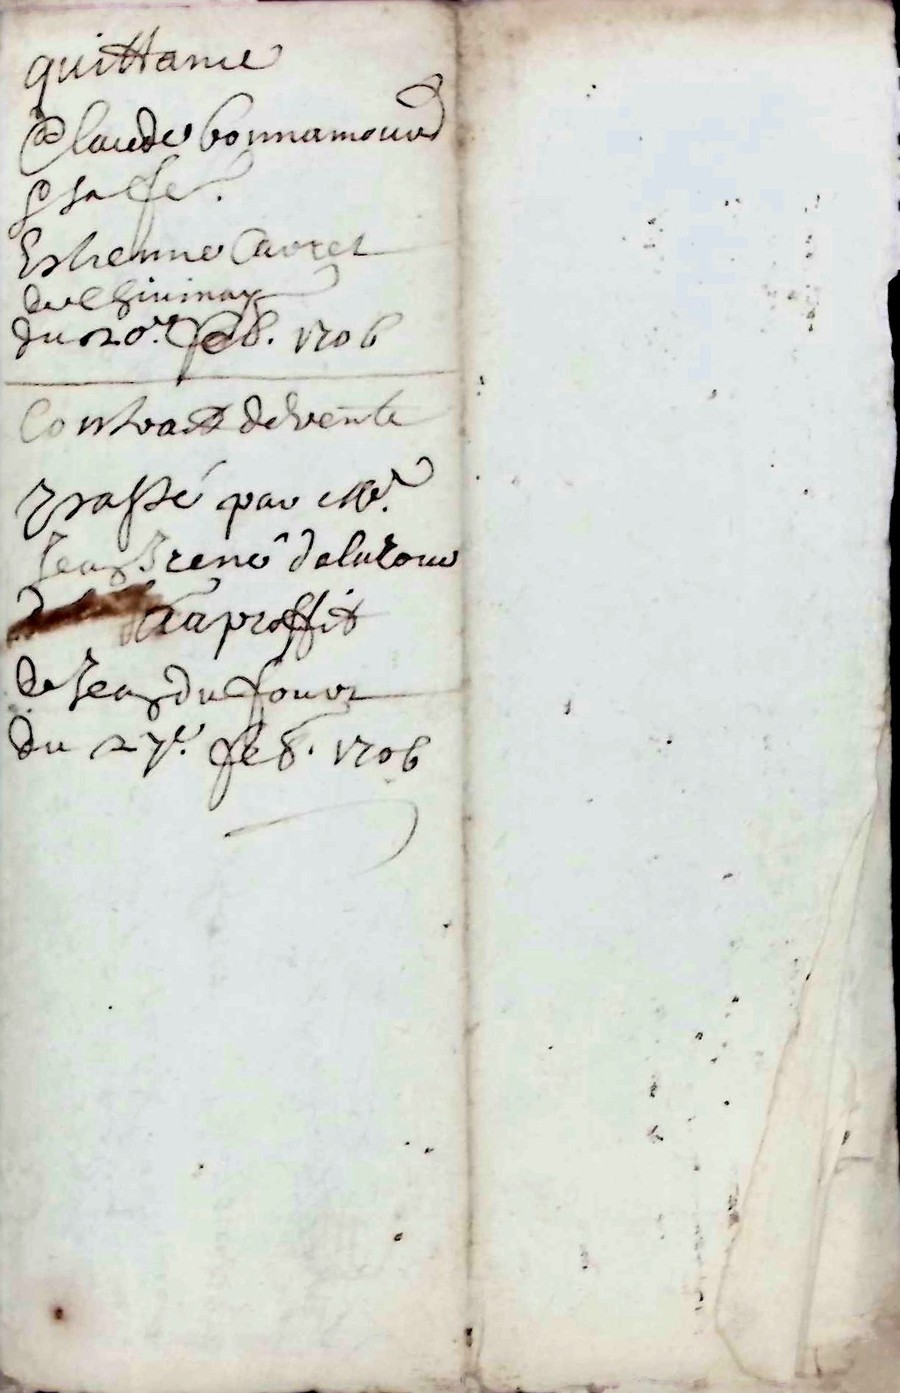 quittance
Claude bonnamour
& sa fe.
Estienne Cavret
de Chivinay
du 20e. feb. 1706
Contract de vente
passé par Mr.
Jean rené delatour
au proffit
de Jean du four
du 27e. feb. 1706